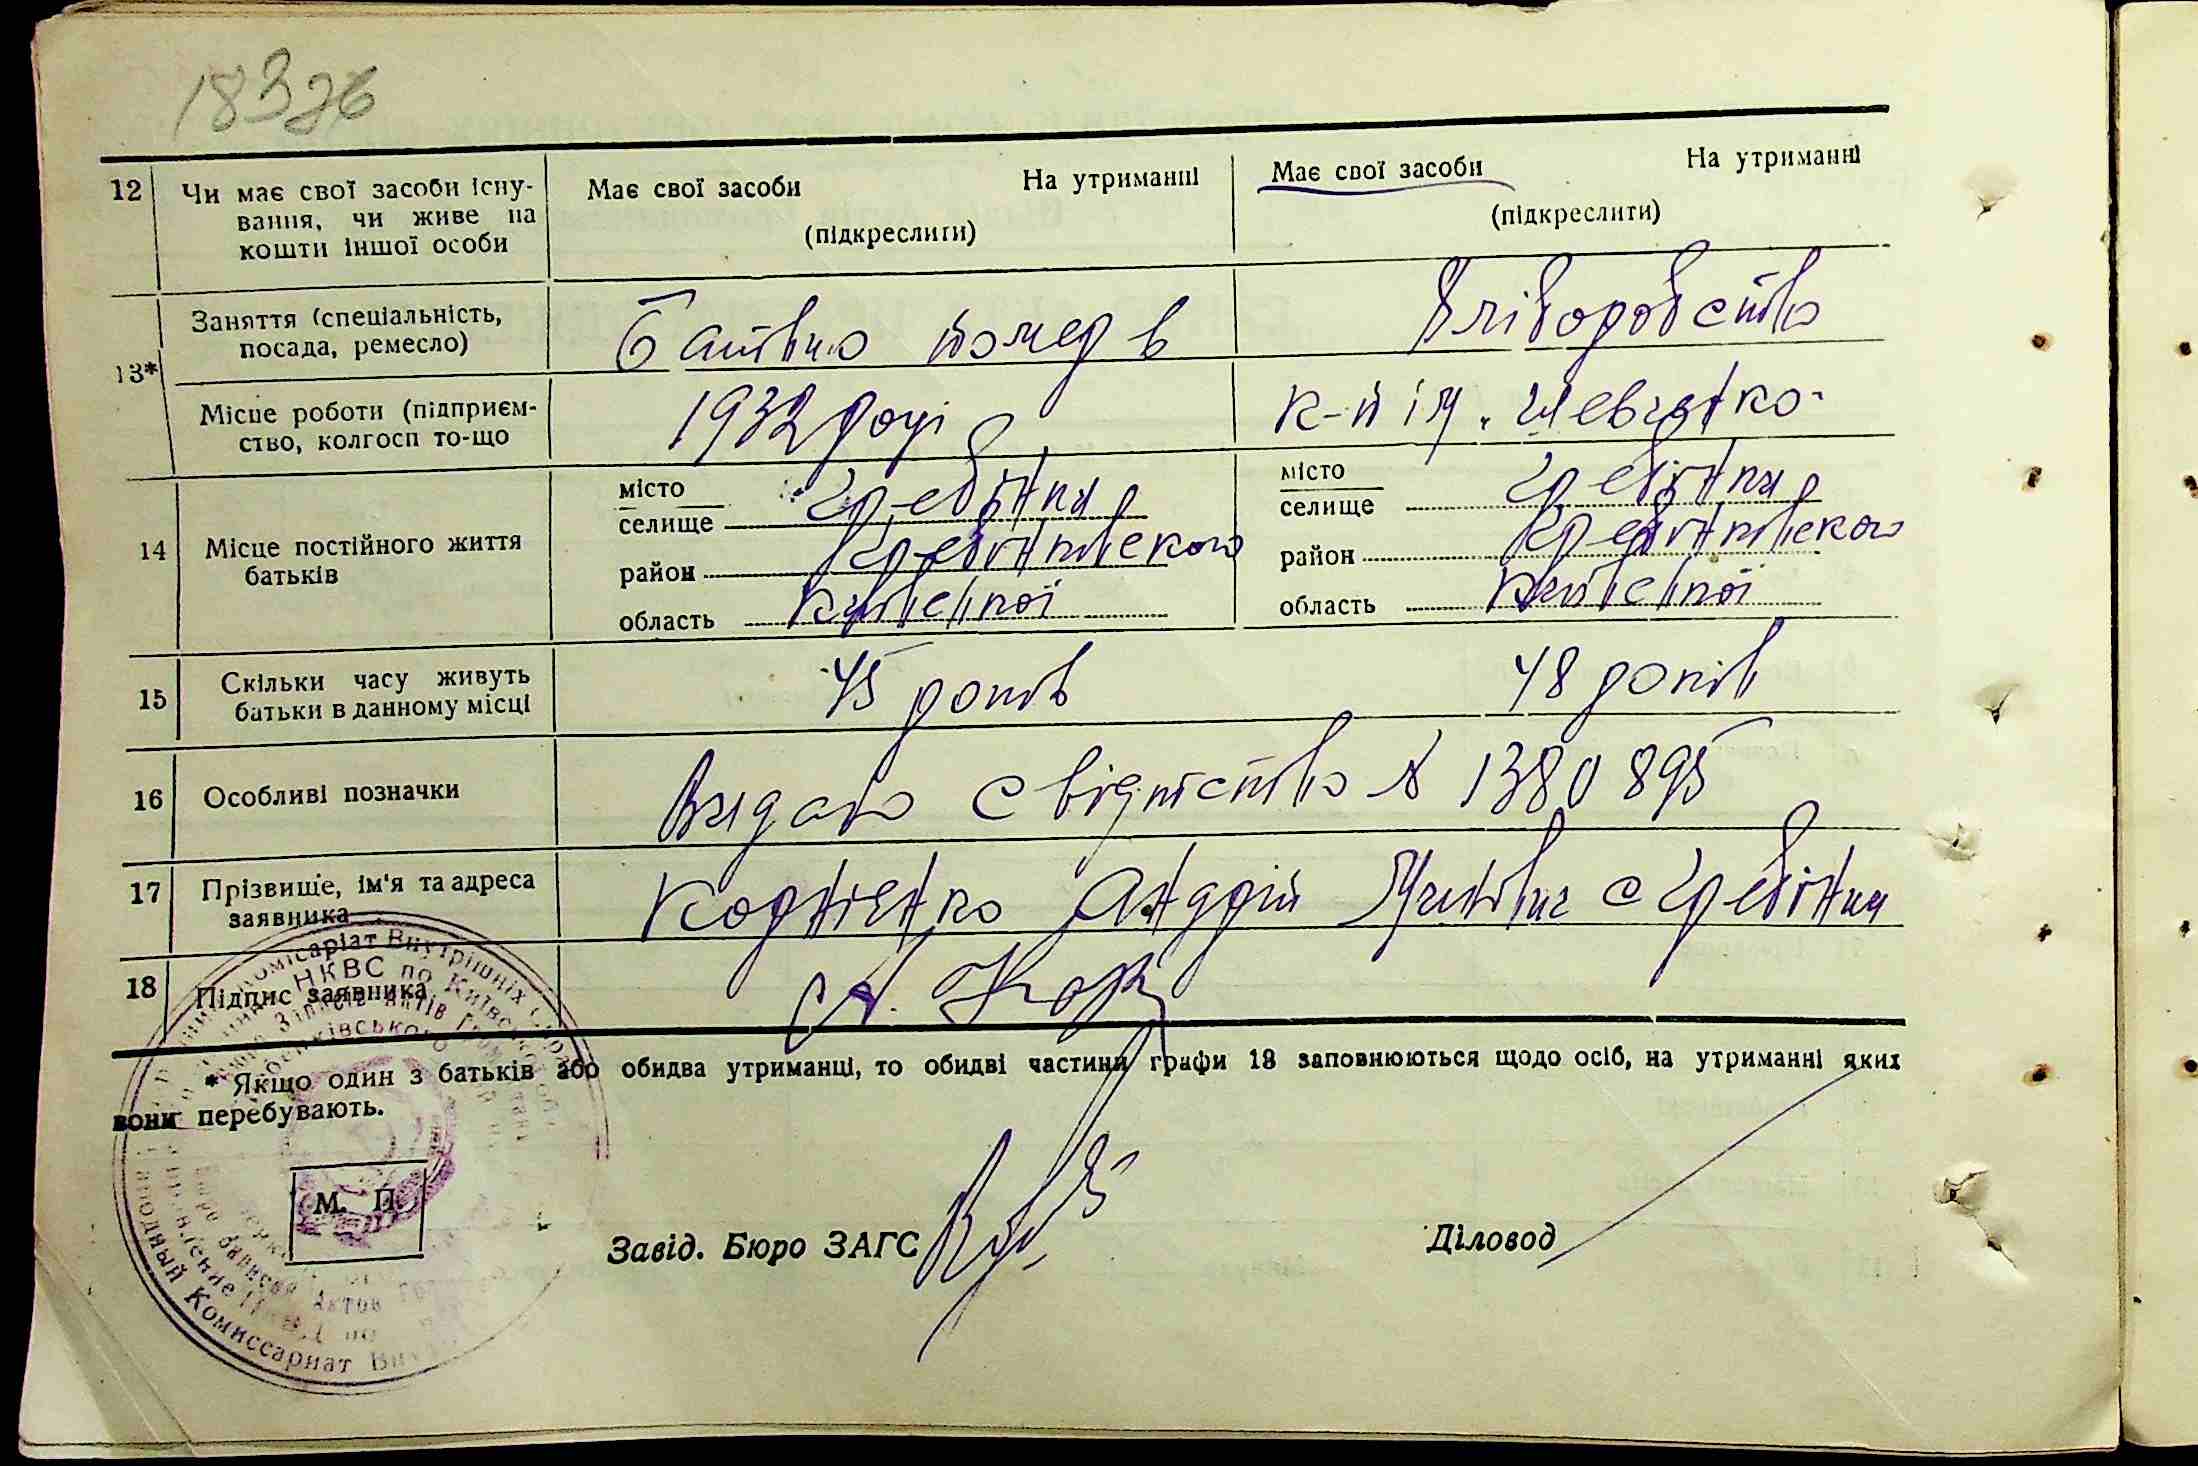 18376
12 Чи має свої засоби існу-
вання, чи живе на
кошти іншої особи
Має свої засоби На утриманні
(підкреслити)
Має свої засоби На утриманні
(підкреслити)
13*
Заняття (спеціальність,
посада, ремесло)
Батько помер в
Хліборобство
Місце роботи (підприєм-
ство, колгосп то-що
1932 році
к-п ім. Шевченко
14 Місце постійного життя
батьків
місто
селище Гребінки
район Гребінківского
область Київської
місто
селище Гребінки
район Гребінківского
область Київської
15 Скільки часу живуть
батьки в данному місці
45 років
48 років
16 Особливі позначки
Видано свідитство № 1380895
17 Прізвище, ім'я та адреса
заявника
Корнієнко Андрій с Гребінки
18 Підпис заявника
А. Кор
* Якщо один з батьків або обидва утриманці, то обидві частини графи 13 заповнюються щодо осіб, на утриманні яких
вони перебувають.
М. П.
Завід. Бюро ЗАГС
Діловод
Комісаріат Внутрішніх
НКВС по Київськ
Актов
Комиссариат